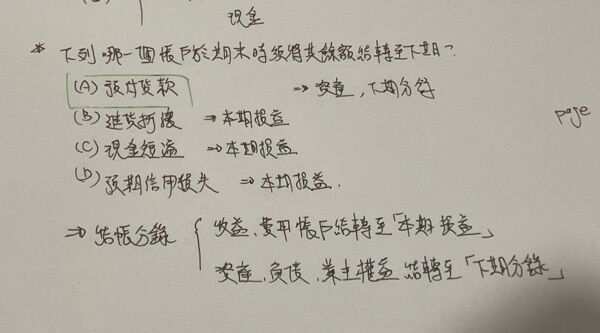 現金
* 下列哪一個帳戶於期末時須將其餘額結轉至下期?
(A) 預付貨款 ⇒ 資產,下期分錄
(B) 進貨折讓 → 本期損益
(C) 現金短溢 → 本期損益
(D) 預期信用損失 → 本期損益.
page
⇒ 結帳分錄 { 收益、費用帳戶結轉至「本期損益」
資產、負債、業主權益 結轉至「下期分錄」